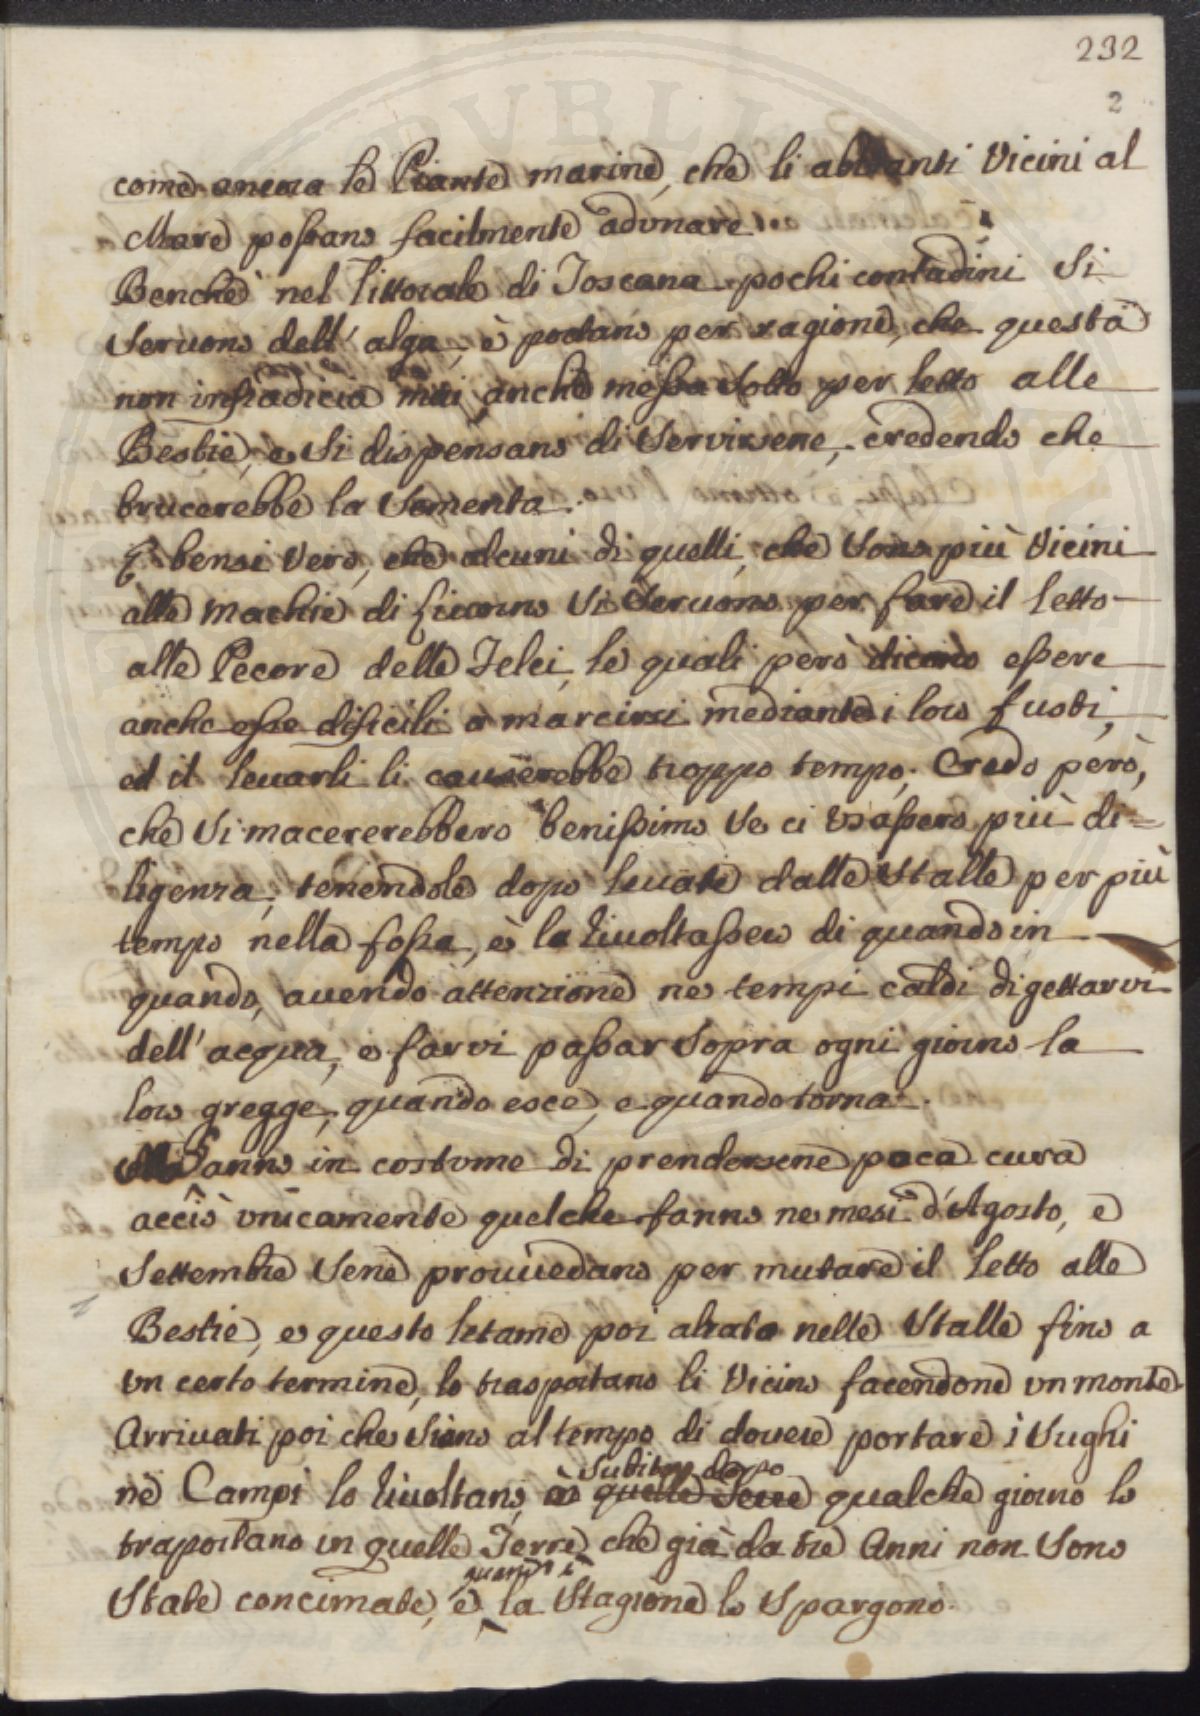 232
2
come ancora le Piante marine, che li abitanti Vicini al
Mare possano facilmente adunare.
Benchè nel littorale di Toscana pochi contadini Si
Servono dell' alga, è portano per ragione, che questa
non infradicia mai anche messa Sotto per letto alle
Bestie, e Si dispensano di Servirsene, credendo che
brucerebbe la Sementa.
È bensi Vero, che alcuni di quelli, che Sono più Vicini
alle Machie di ficonno Si Servono per fare il letto
alle Pecore delle Felci, le quali però dicono essere
anche esse dificili a marcirsi mediante i loro fusti,
ed il levarli li causerebbe troppo tempo. Credo però,
che Si macererebbero benissimo Se ci Usassero più di=
ligenza, tenendole dopo levate dalle Stalle per più
tempo nella fossa, è la rivoltassero di quando in
quando, avendo attenzione ne tempi caldi di gettarvi
dell' acqua, e farvi passar Sopra ogni giorno la
loro gregge, quando esce, e quando torna.
Sanno in costume di prendersene poca cura
acciò unicamente quelche fanno ne mesi d'Agosto, e
Settembre Sene provvedano per mutare il letto alle
Bestie, e questo letame poi alzato nelle Stalle fino a
un certo termine, lo trasportano li Vicino facendone un monte
Arrivati poi che Siano al tempo di dovere portare i Sughi
ne Campi lo rivoltano, subito dopo
in quelle Terre qualche giorno lo
traportano in quelle Terre che già da tre Anni non Sono
State concimate, e quand' è la Stagione lo Spargono.